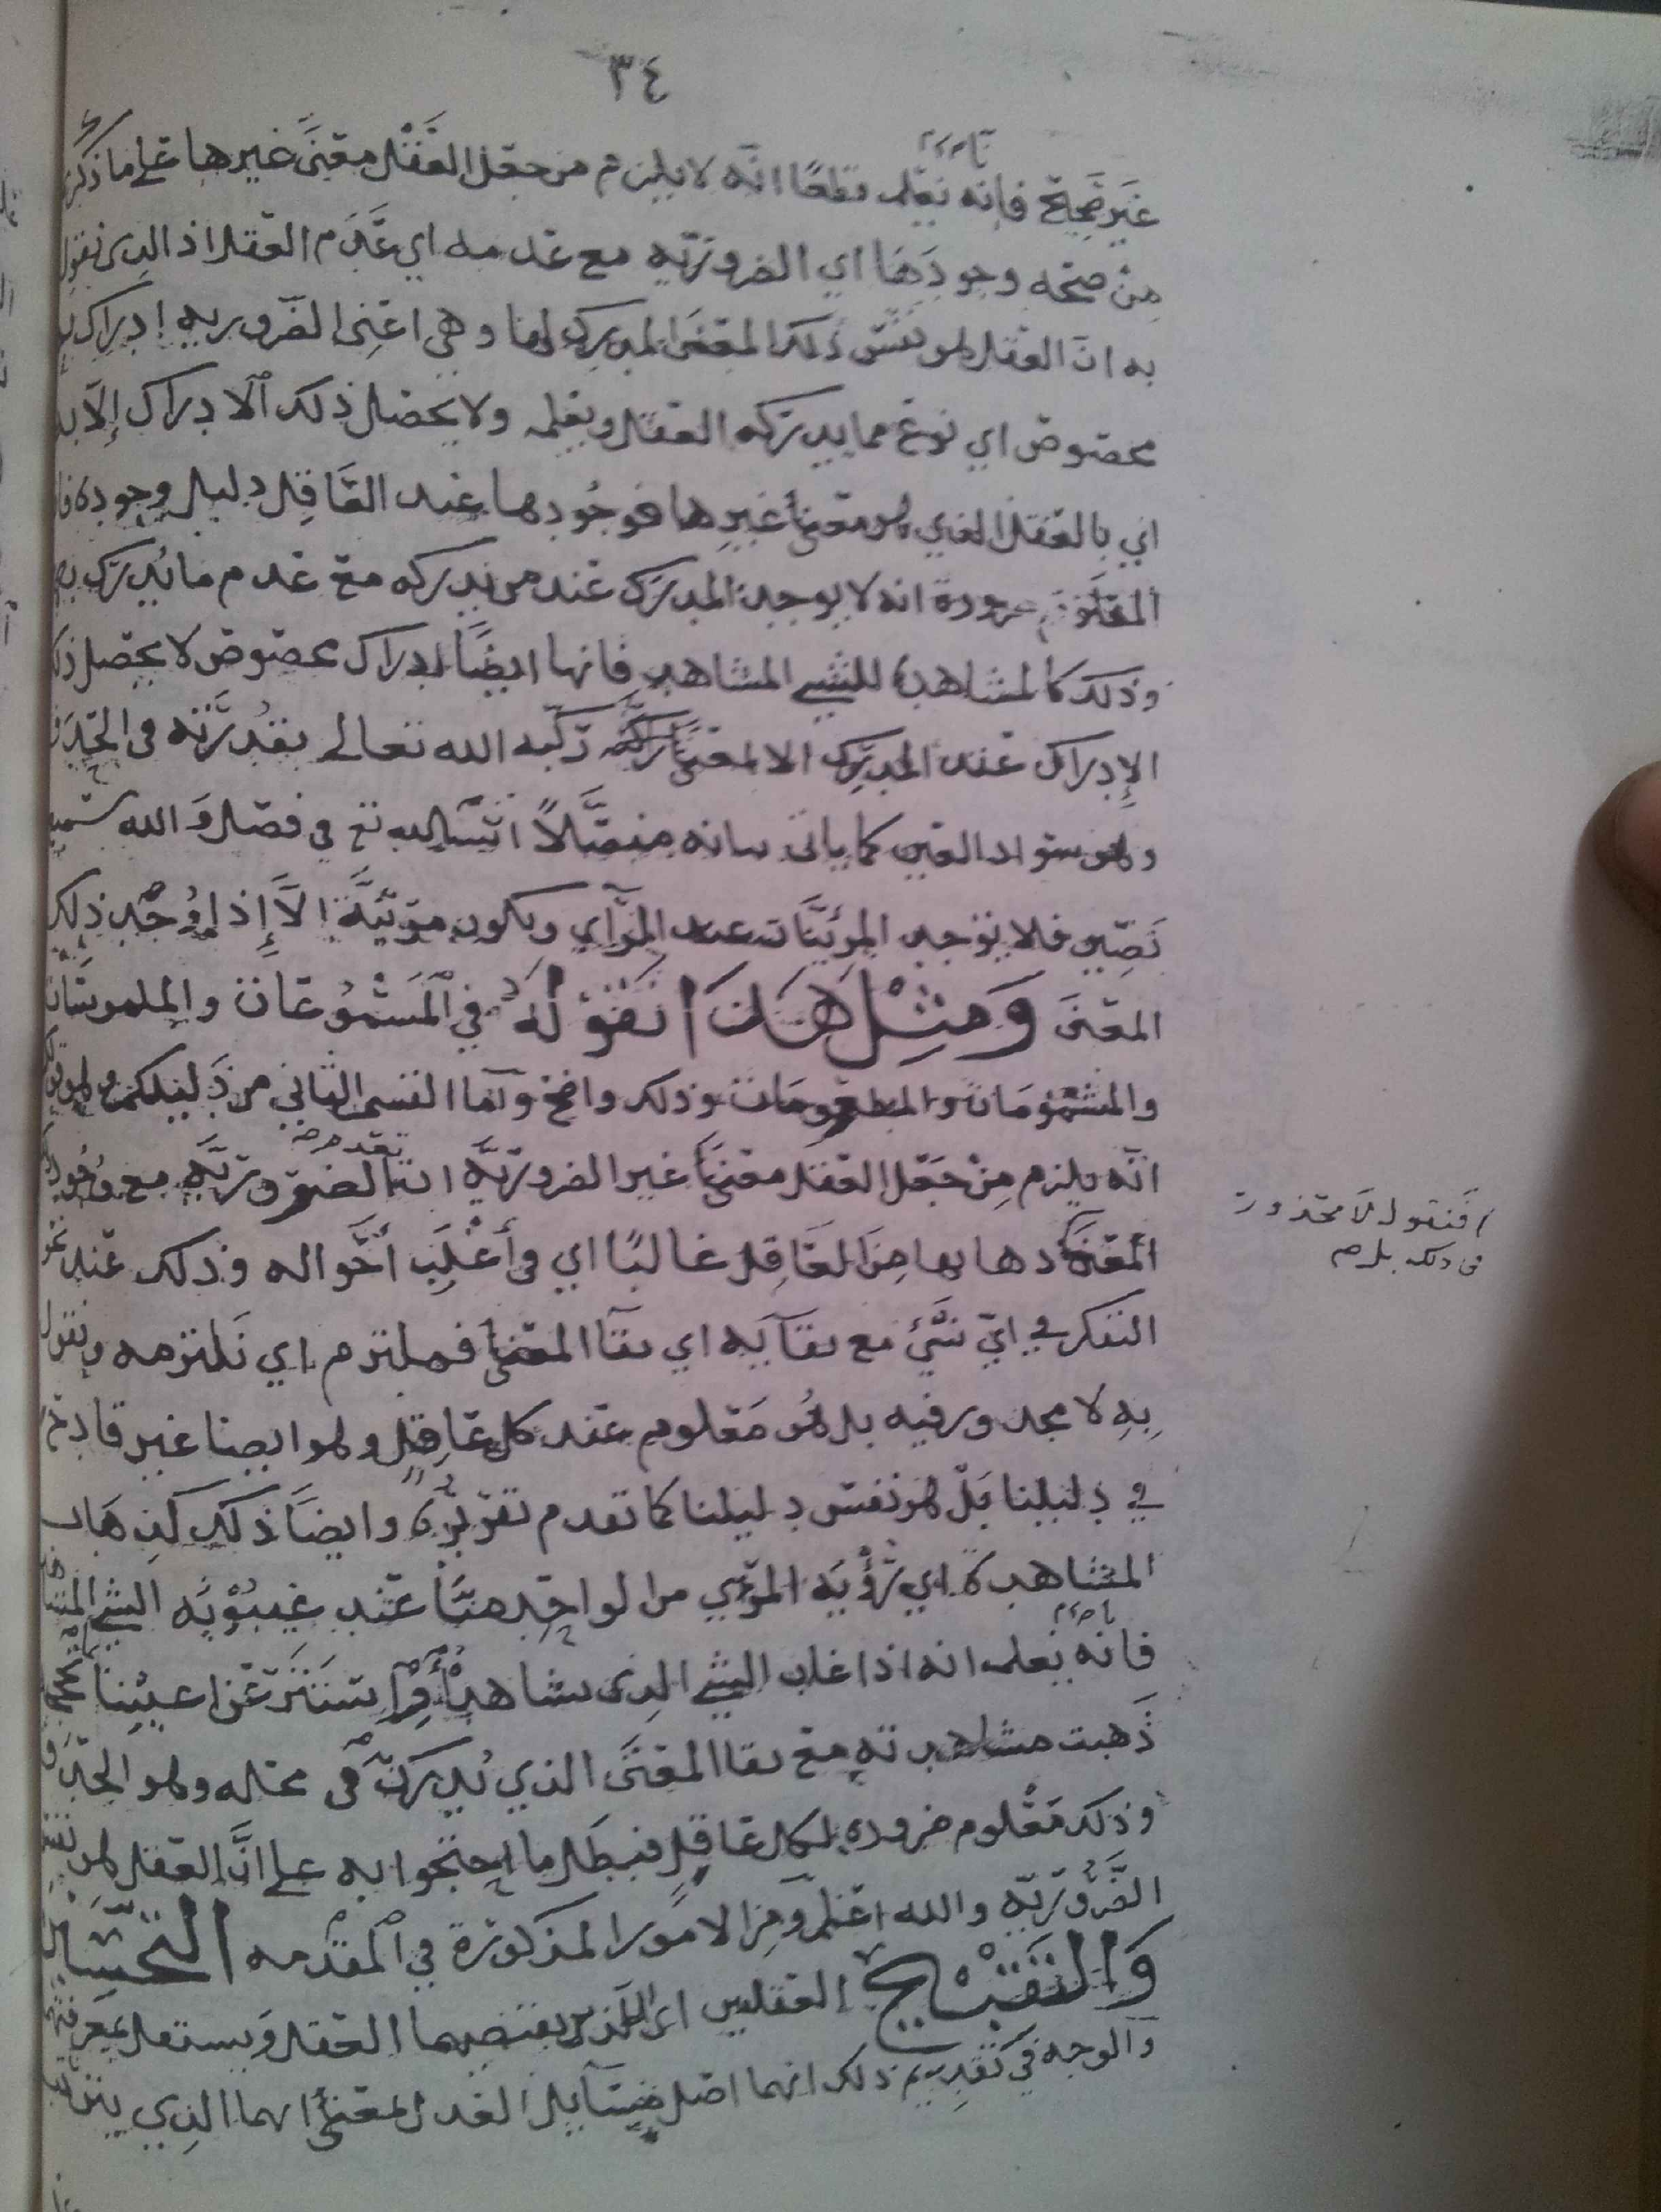 ٣٤
غير صحيح فإنه نعلم قطعًا انه لا يلزم من جعل العقل معنىً غيرها على ما ذكر
من صحه وجودها اي الضروريه مع عدمه اي عَدَم العقل اذ الذي نقول
به ان العقل هو نفس ذلك المعنى المدرك لها وهي اعني الضروريه إدراك
مخصوص اي نوع مما يدركه العقل ويعلمه ولا يحصل ذلك الادراك إلا به
اي بالعقل الذي هو معنىً غيرها فوجُودها عند العَاقِل دليل وجوده
المعلوم ضرورة انه لا يوجد المدرَك عند من يدركه مع عدم ما يُدرَك به
وذلك كالمشاهدة للشيء المشاهد فانها ايضًا ادراك مخصوص لا يحصل ذلك
الإدراك عند المدرِك الا لمعنىً ركبه الله تعالى بقُدرته في الحدق
وهو سواد العين كما ياتي بيانه مفصَّلاً ان شا الله تع في فصل وَالله سميع
بَصِير فلا توجد المرئيَّات عند الرآي وتكون مرئيَّة إلاَّ إذا وُجد ذلك
المعنَى وَمِثْل هَذَا نَقُولُهُ في المَسْمُوعَات والملموسَات
والمشمُومَات والمطعُومَات وذلك واضح وَامَّا القسم الثاني من دَليلكم وهو قولكم
انَّه يلزم مِنْ جَعْل العقل معنىً غير الضروريَّه الضروريَّه مع وجود ذلك
المعنى ذهابها من العَاقِل غالبًا اي في أَغْلَبِ أَحْواله وذلك عند نحو
التفكر في ايّ شَيْئ مع بقآيه اي بقآ المعنى فملتزم اي نلتزمه ونقول
بِهِ لا محذور فيه بل هُو مَعْلوم عند كل عَاقِل وهو ايضا غير قادح
في دليلنا بَلْ هو نفس دليلنا كما تقدم تقريره وايضًا ذلك كَذهَاب
المشاهدة اي رُؤْيَه المرْئي من الواحِد منَّا عند غيبُوْبَه الشيء المشاهد
فانه نعلم انه اذا غاب الشيء الذي نشاهده أَوْ استتر عَن اعيُننا
ذَهبت مشاهدته مع بقا المعنَى الذي يُدرَك في محله وهو الحدق
وذلك مَعْلوم ضروره لكل عاقِل فبطَل ما احتجوا به على انَّ العقل هو نفس
الضَّرُوريَّه والله اعلم وَمِن الامور المذكورة في المقدمه التحسين
وَالتَقْبيح العقليين اي الذين يقتضيهما العقل وَيستقل بمعرفتهما
والوجه في تقديم ذلك انهما اصل مسَآيل العدل بمعنى انهما الذي
فنقول لا محذور
في ذلك بل